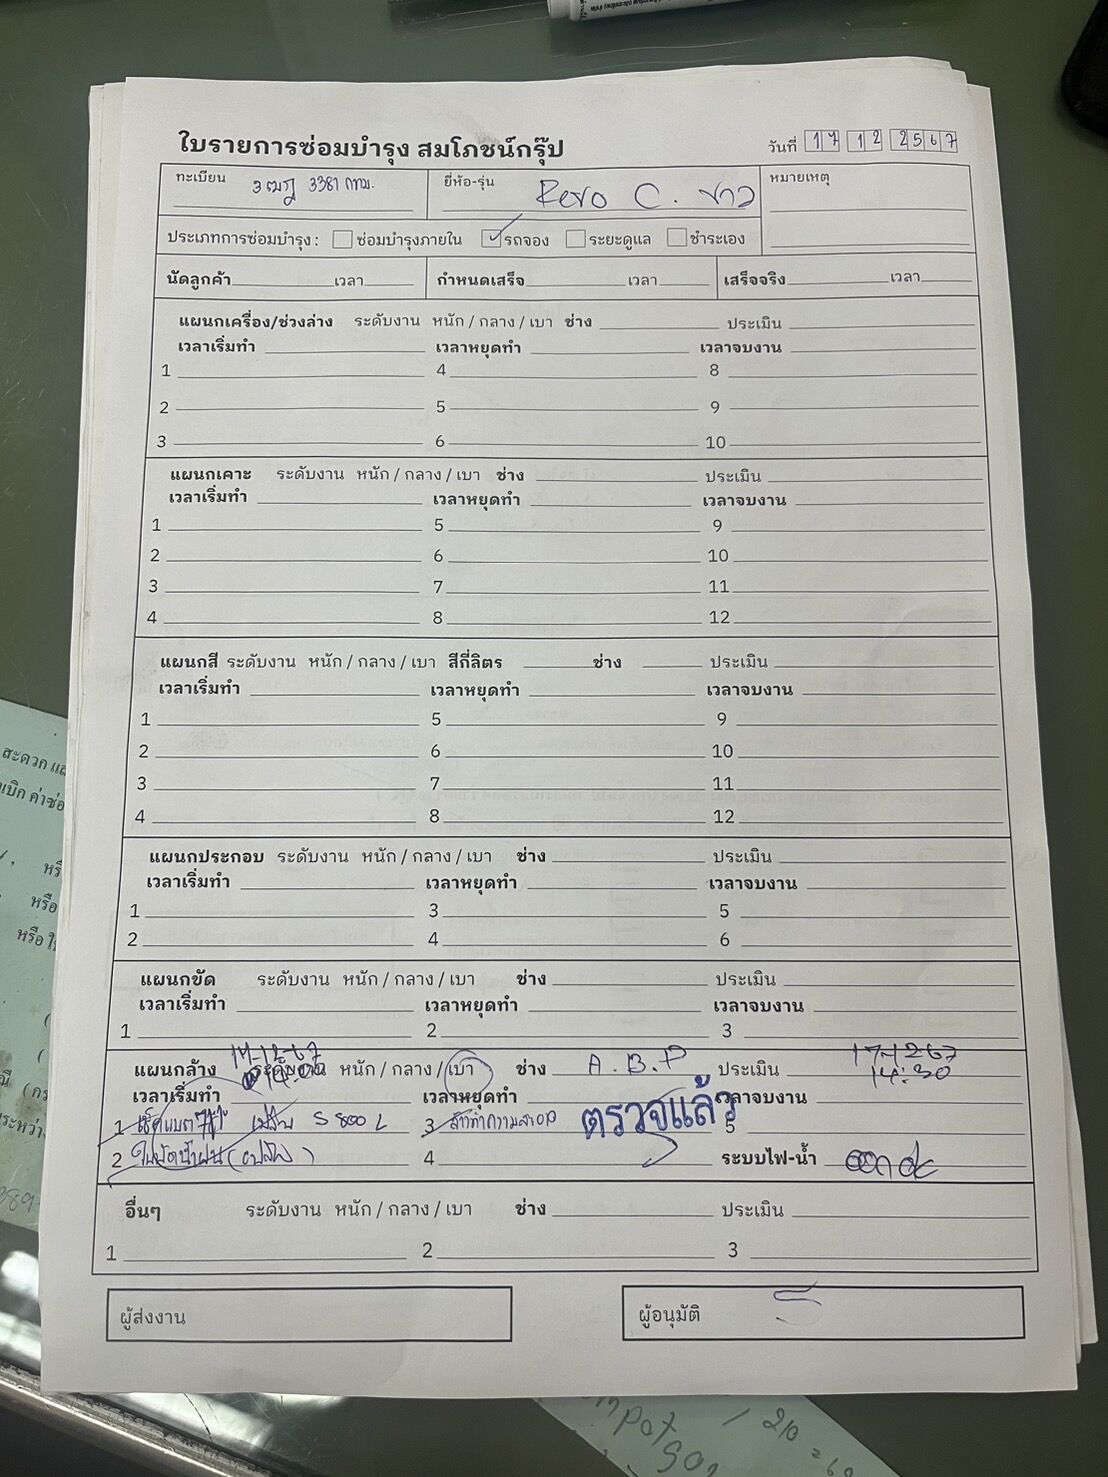 ใบรายการซ่อมบำรุง สมโภชน์กรุ๊ป
วันที่ 17 12 2567
ทะเบียน 3ฒฎ 3381 กทม.
ยี่ห้อ-รุ่น Revo C. ขาว
หมายเหตุ
ประเภทการซ่อมบำรุง : ซ่อมบำรุงภายใน รถจอง ระยะดูแล ชำระเอง
นัดลูกค้า เวลา กำหนดเสร็จ เวลา เสร็จจริง เวลา
แผนกเครื่อง/ช่วงล่าง ระดับงาน หนัก / กลาง / เบา ช่าง ประเมิน
เวลาเริ่มทำ เวลาหยุดทำ เวลาจบงาน
1 4 8
2 5 9
3 6 10
แผนกเคาะ ระดับงาน หนัก / กลาง / เบา ช่าง ประเมิน
เวลาเริ่มทำ เวลาหยุดทำ เวลาจบงาน
1 5 9
2 6 10
3 7 11
4 8 12
แผนกสี ระดับงาน หนัก / กลาง / เบา สีกี่ลิตร ช่าง ประเมิน
เวลาเริ่มทำ เวลาหยุดทำ เวลาจบงาน
1 5 9
2 6 10
3 7 11
4 8 12
แผนกประกอบ ระดับงาน หนัก / กลาง / เบา ช่าง ประเมิน
เวลาเริ่มทำ เวลาหยุดทำ เวลาจบงาน
1 3 5
2 4 6
แผนกขัด ระดับงาน หนัก / กลาง / เบา ช่าง ประเมิน
เวลาเริ่มทำ เวลาหยุดทำ เวลาจบงาน
1 2 3
17-12-67 17-12-67
แผนกล้าง ระดับงาน หนัก / กลาง / เบา ช่าง A.B.P ประเมิน
14:00 14:30
เวลาเริ่มทำ เวลาหยุดทำ เวลาจบงาน
1 เช็คแบต 3 ล้างทำความสะอาด ตรวจแล้ว 5
2 ใบปัดน้ำฝน 4 ระบบไฟ-น้ำ
อื่นๆ ระดับงาน หนัก / กลาง / เบา ช่าง ประเมิน
1 2 3
ผู้ส่งงาน ผู้อนุมัติ
สะดวก
หรือ
หรือ